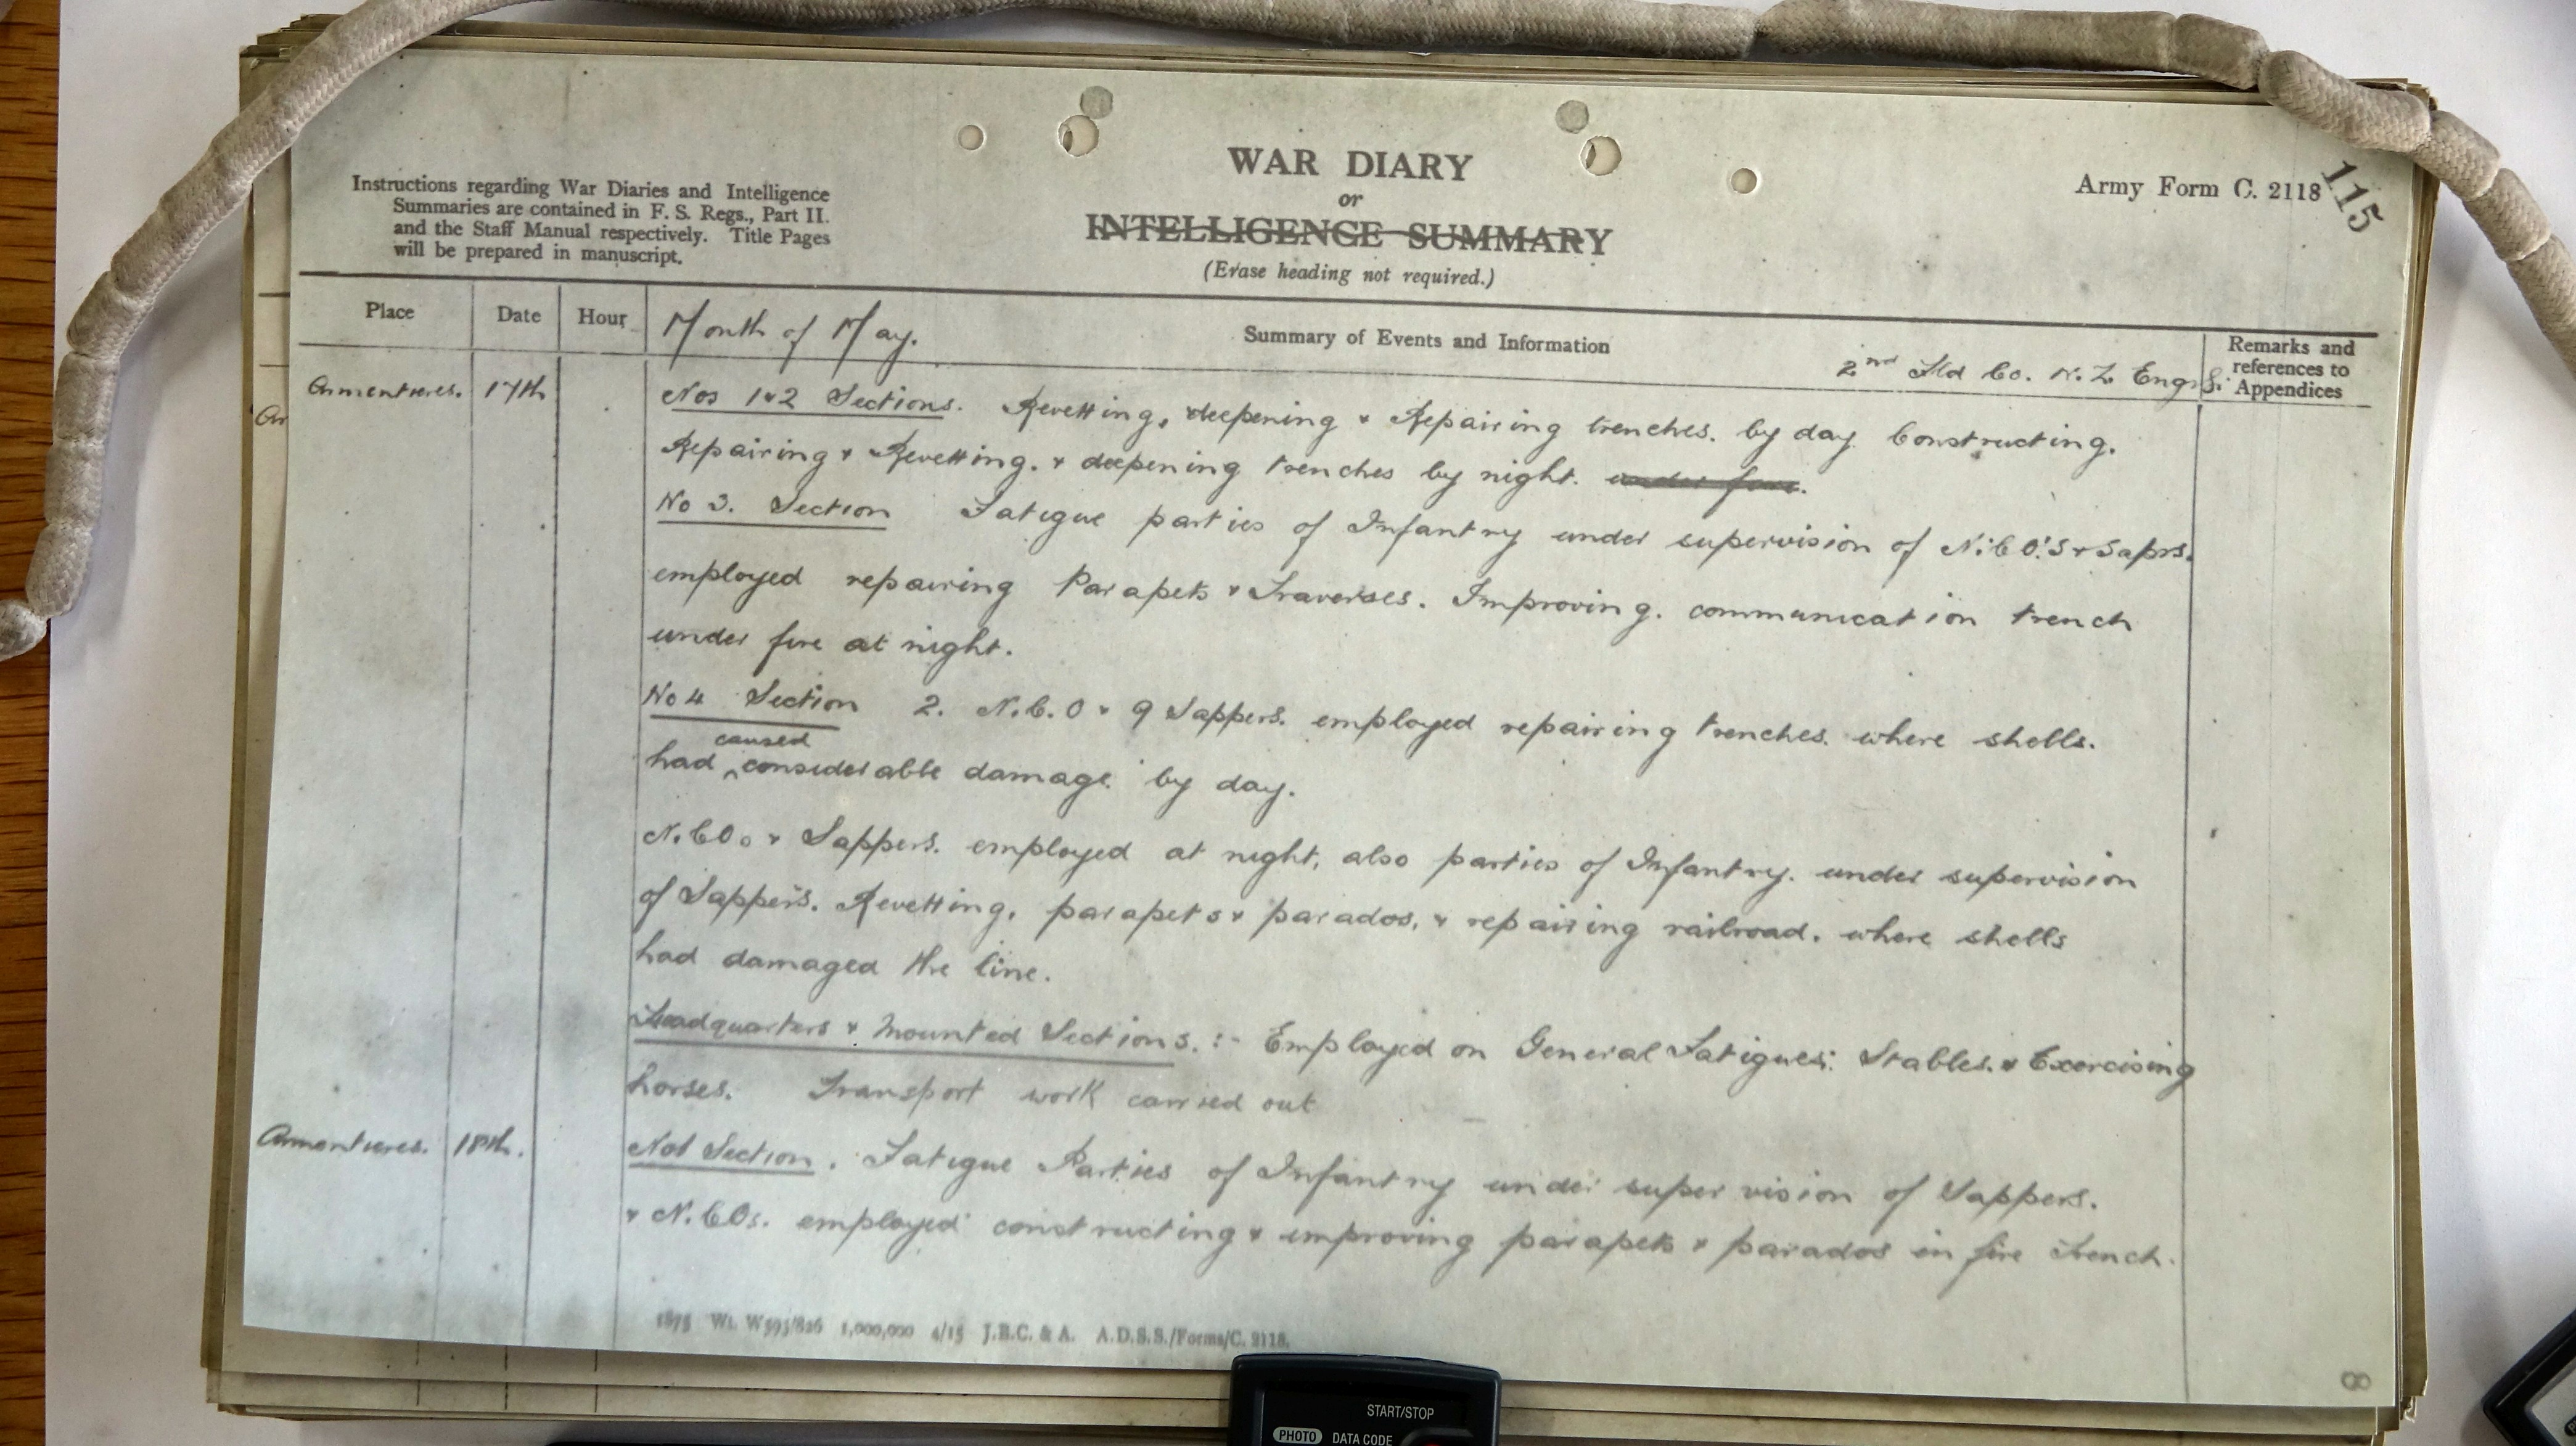 WAR DIARY
or
INTELLIGENCE SUMMARY
(Erase heading not required.)
Instructions regarding War Diaries and Intelligence
Summaries are contained in F. S. Regs., Part II.
and the Staff Manual respectively. Title Pages
will be prepared in manuscript.
Army Form C. 2118
115
Place
Date
Hour
Month of May.
Summary of Events and Information
2nd Fld Co. N.Z. Engrs.
Remarks and
references to
Appendices
Armentieres. 17th
Nos 1 & 2 Sections. Revetting, deepening & Repairing trenches. by day Constructing.
Repairing & Revetting. & deepening trenches by night. under fire.
No 3. Section Fatigue parties of Infantry under supervision of N.C.O.'s & Saprs.
employed repairing Parapets & Traverses. Improving. communication trench
under fire at night.
No 4 Section 2. N.C.O & 9 Sappers. employed repairing trenches. where shells.
caused
had ^ considerable damage by day.
N.COs & Sappers. employed at night, also parties of Infantry. under supervision
of Sappers. Revetting, parapets & parados, & repairing railroad. where shells
had damaged the line.
Headquarters & Mounted Sections. :- Employed on General Fatigues: Stables. & Exercising
horses. Transport work carried out
Armentieres. 18th.
No1 Section. Fatigue Parties of Infantry under supervision of Sappers.
& N.COs. employed constructing & improving parapets & parados in fire trench.
1875 Wt. W593/826 1,000,000 4/15 J.B.C. & A. A.D.S.S./Forms/C. 2118.
8
Ar
START/STOP
PHOTO DATA CODE